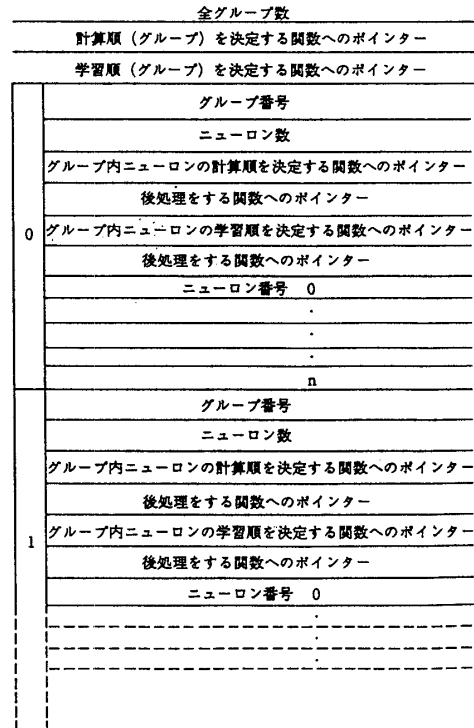 全グループ数
計算順（グループ）を決定する関数へのポインター
学習順（グループ）を決定する関数へのポインター
0
グループ番号
ニューロン数
グループ内ニューロンの計算順を決定する関数へのポインター
後処理をする関数へのポインター
グループ内ニューロンの学習順を決定する関数へのポインター
後処理をする関数へのポインター
ニューロン番号 0
・
・
・
n
1
グループ番号
ニューロン数
グループ内ニューロンの計算順を決定する関数へのポインター
後処理をする関数へのポインター
グループ内ニューロンの学習順を決定する関数へのポインター
後処理をする関数へのポインター
ニューロン番号 0
・
・
・